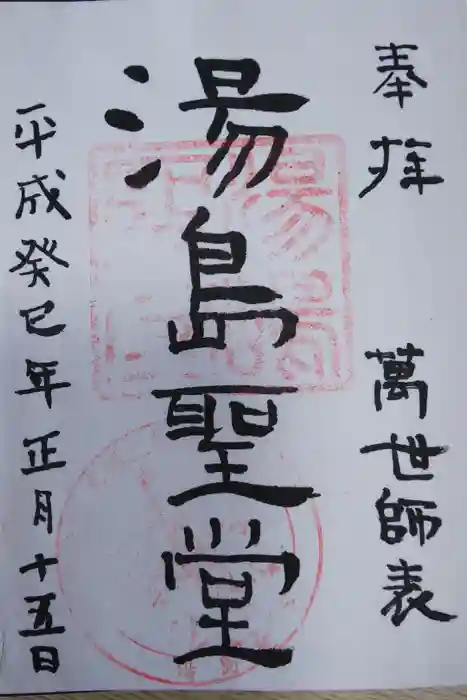 奉拝 萬世師表
湯島聖堂
平成癸巳年正月十五日